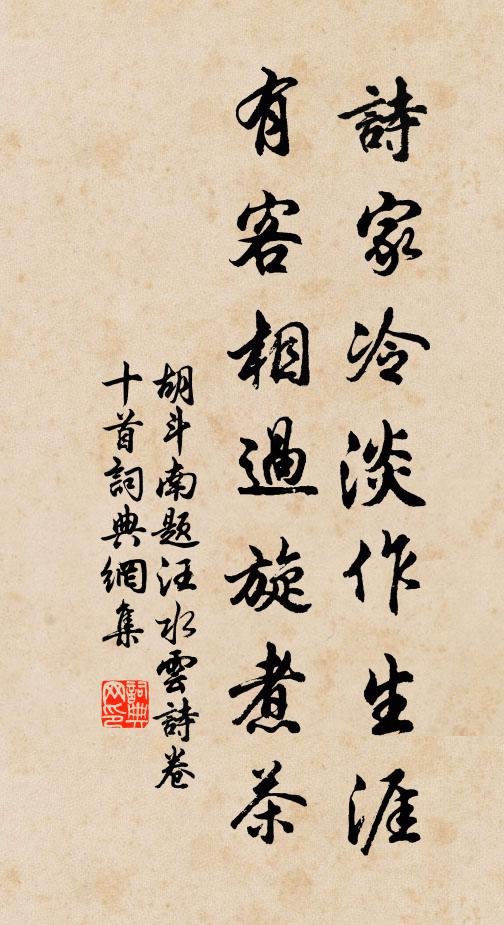 詩家冷淡作生涯
有客相過旋煮茶
胡斗南題汪水雲詩卷
十首詞典網集
詞典
网印